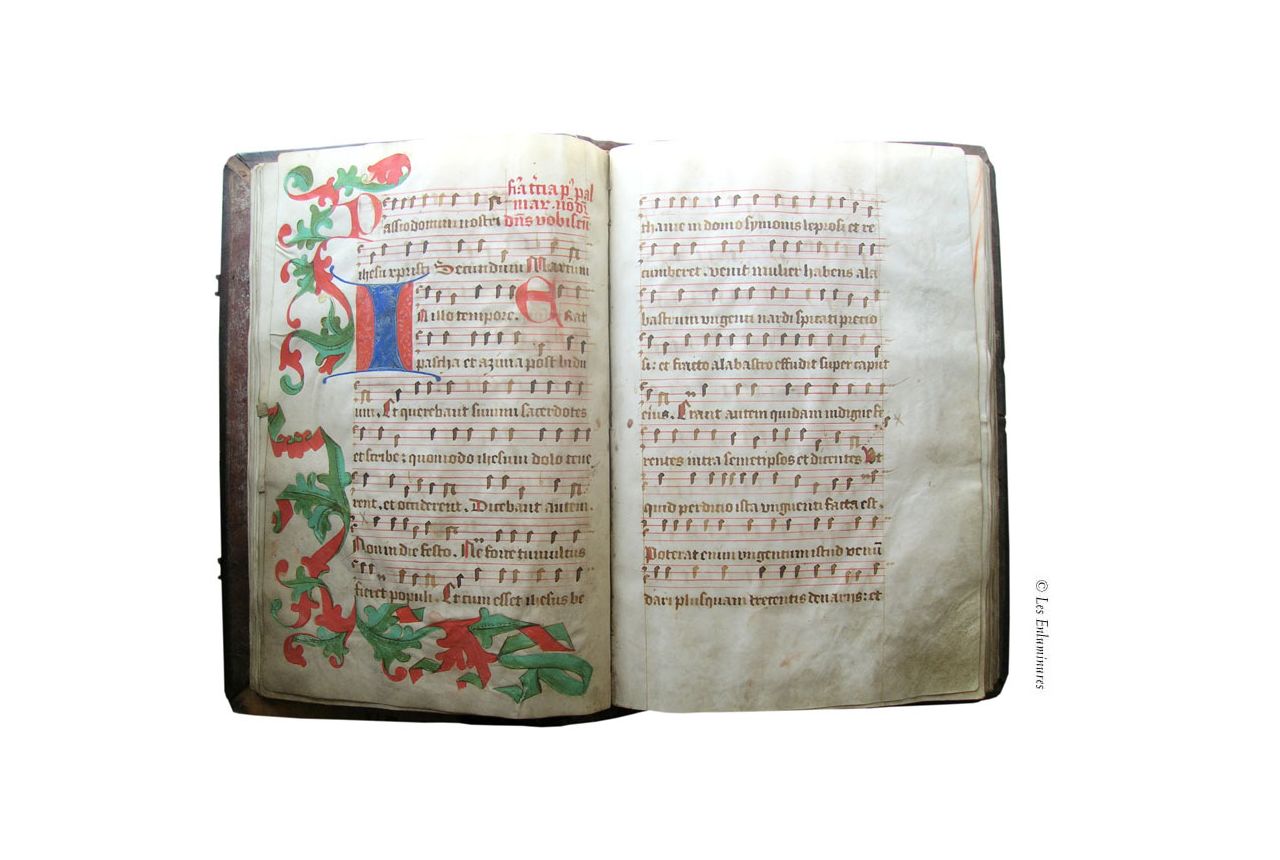 Passio domini nostri
ihesu xpristi Secundum Marcum
IN illo tempore. Erat
pascha et azima post bidu
um. Et querebant summi sacerdotes
et scribe: quomodo ihesum dolo tene
rent. et occiderent. Dicebant autem.
Non in die festo. Ne forte tumultus
fieret populi. Et cum esset ihesus be
thanie in domo symonis leprosi et re
cumberet. venit mulier habens ala
bastrum vngenti nardi spicati precio
si: et fracto alabastro effudit super caput
eius. Erant autem quidam indigne fe
rentes intra semetipsos et dicentes Vt
quid perditio ista vnguenti facta est.
Poterat enim vngentum istud venū
dari plusquam trecentis denarijs: et
© Les Enluminures